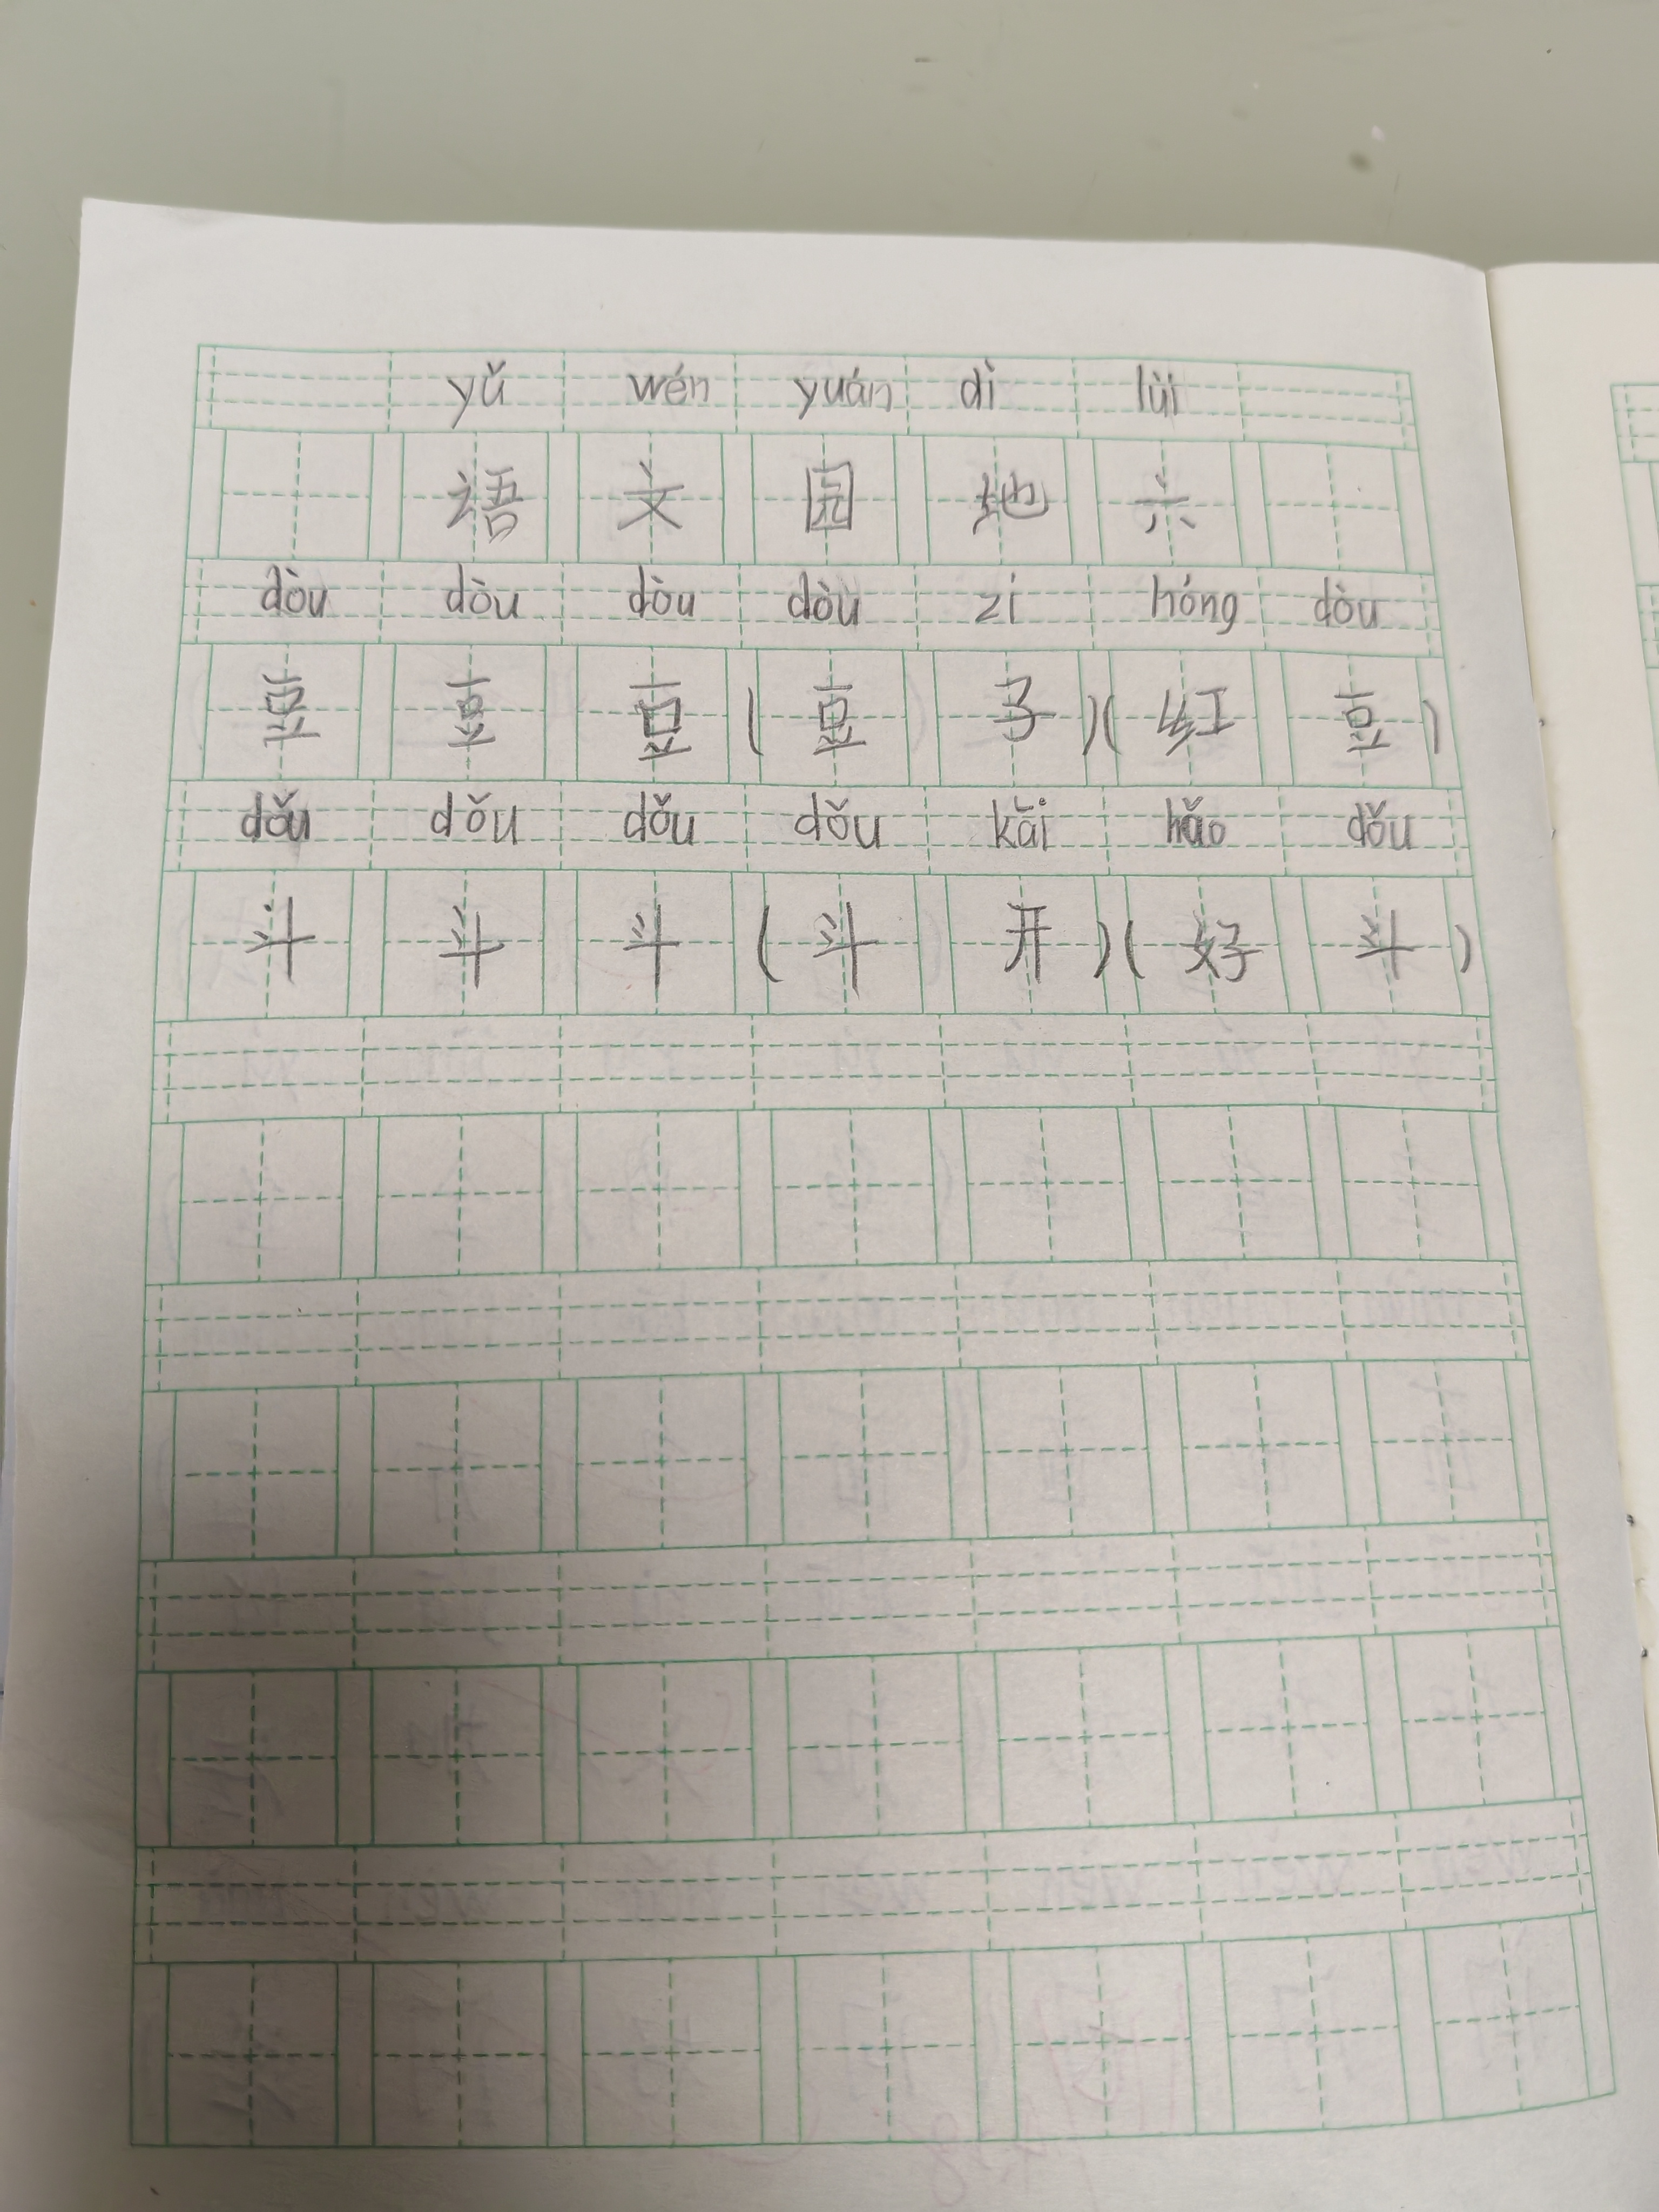 yǔ wén yuán dì lùi
语 文 园 地 六
dòu dòu dòu dòu zí hóng dòu
豆 豆 豆 (豆 子)(红 豆)
dǒu dǒu dǒu dǒu kāi hǎo dǒu
斗 斗 斗 (斗 开)(好 斗)